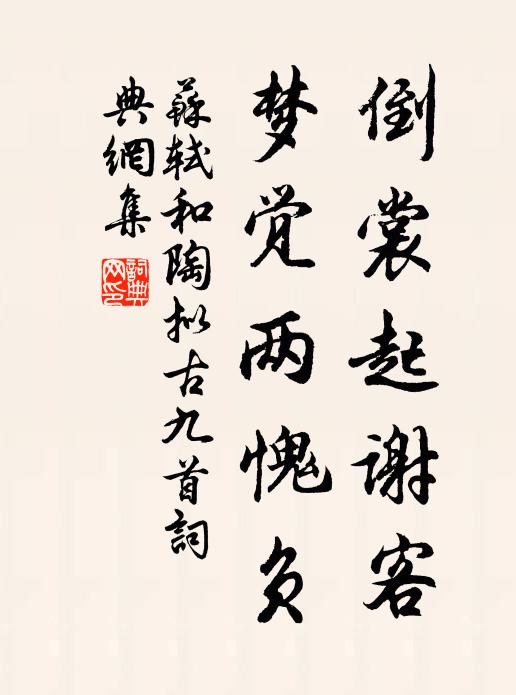 倒裳起谢客
梦觉两愧负
蘇軾和陶拟古九首詞
典網集
詞典
网印